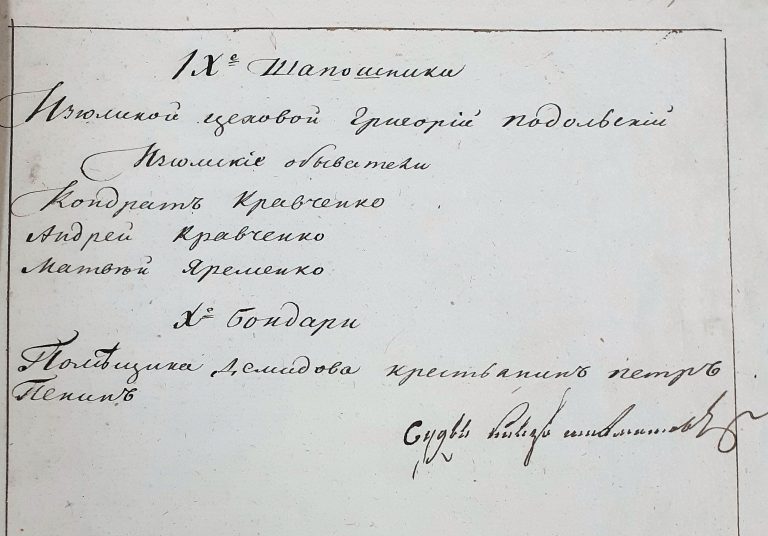 IXе Шапошники
Изюмской цеховой Григорій Подольскій
Изюмскіе обыватели
Кондратъ Кравченко
Андрей Кравченко
Матвѣй Яременко
Xо Бондари
Помѣщика Демидова крестьянинъ петръ
Пенинъ
Судья